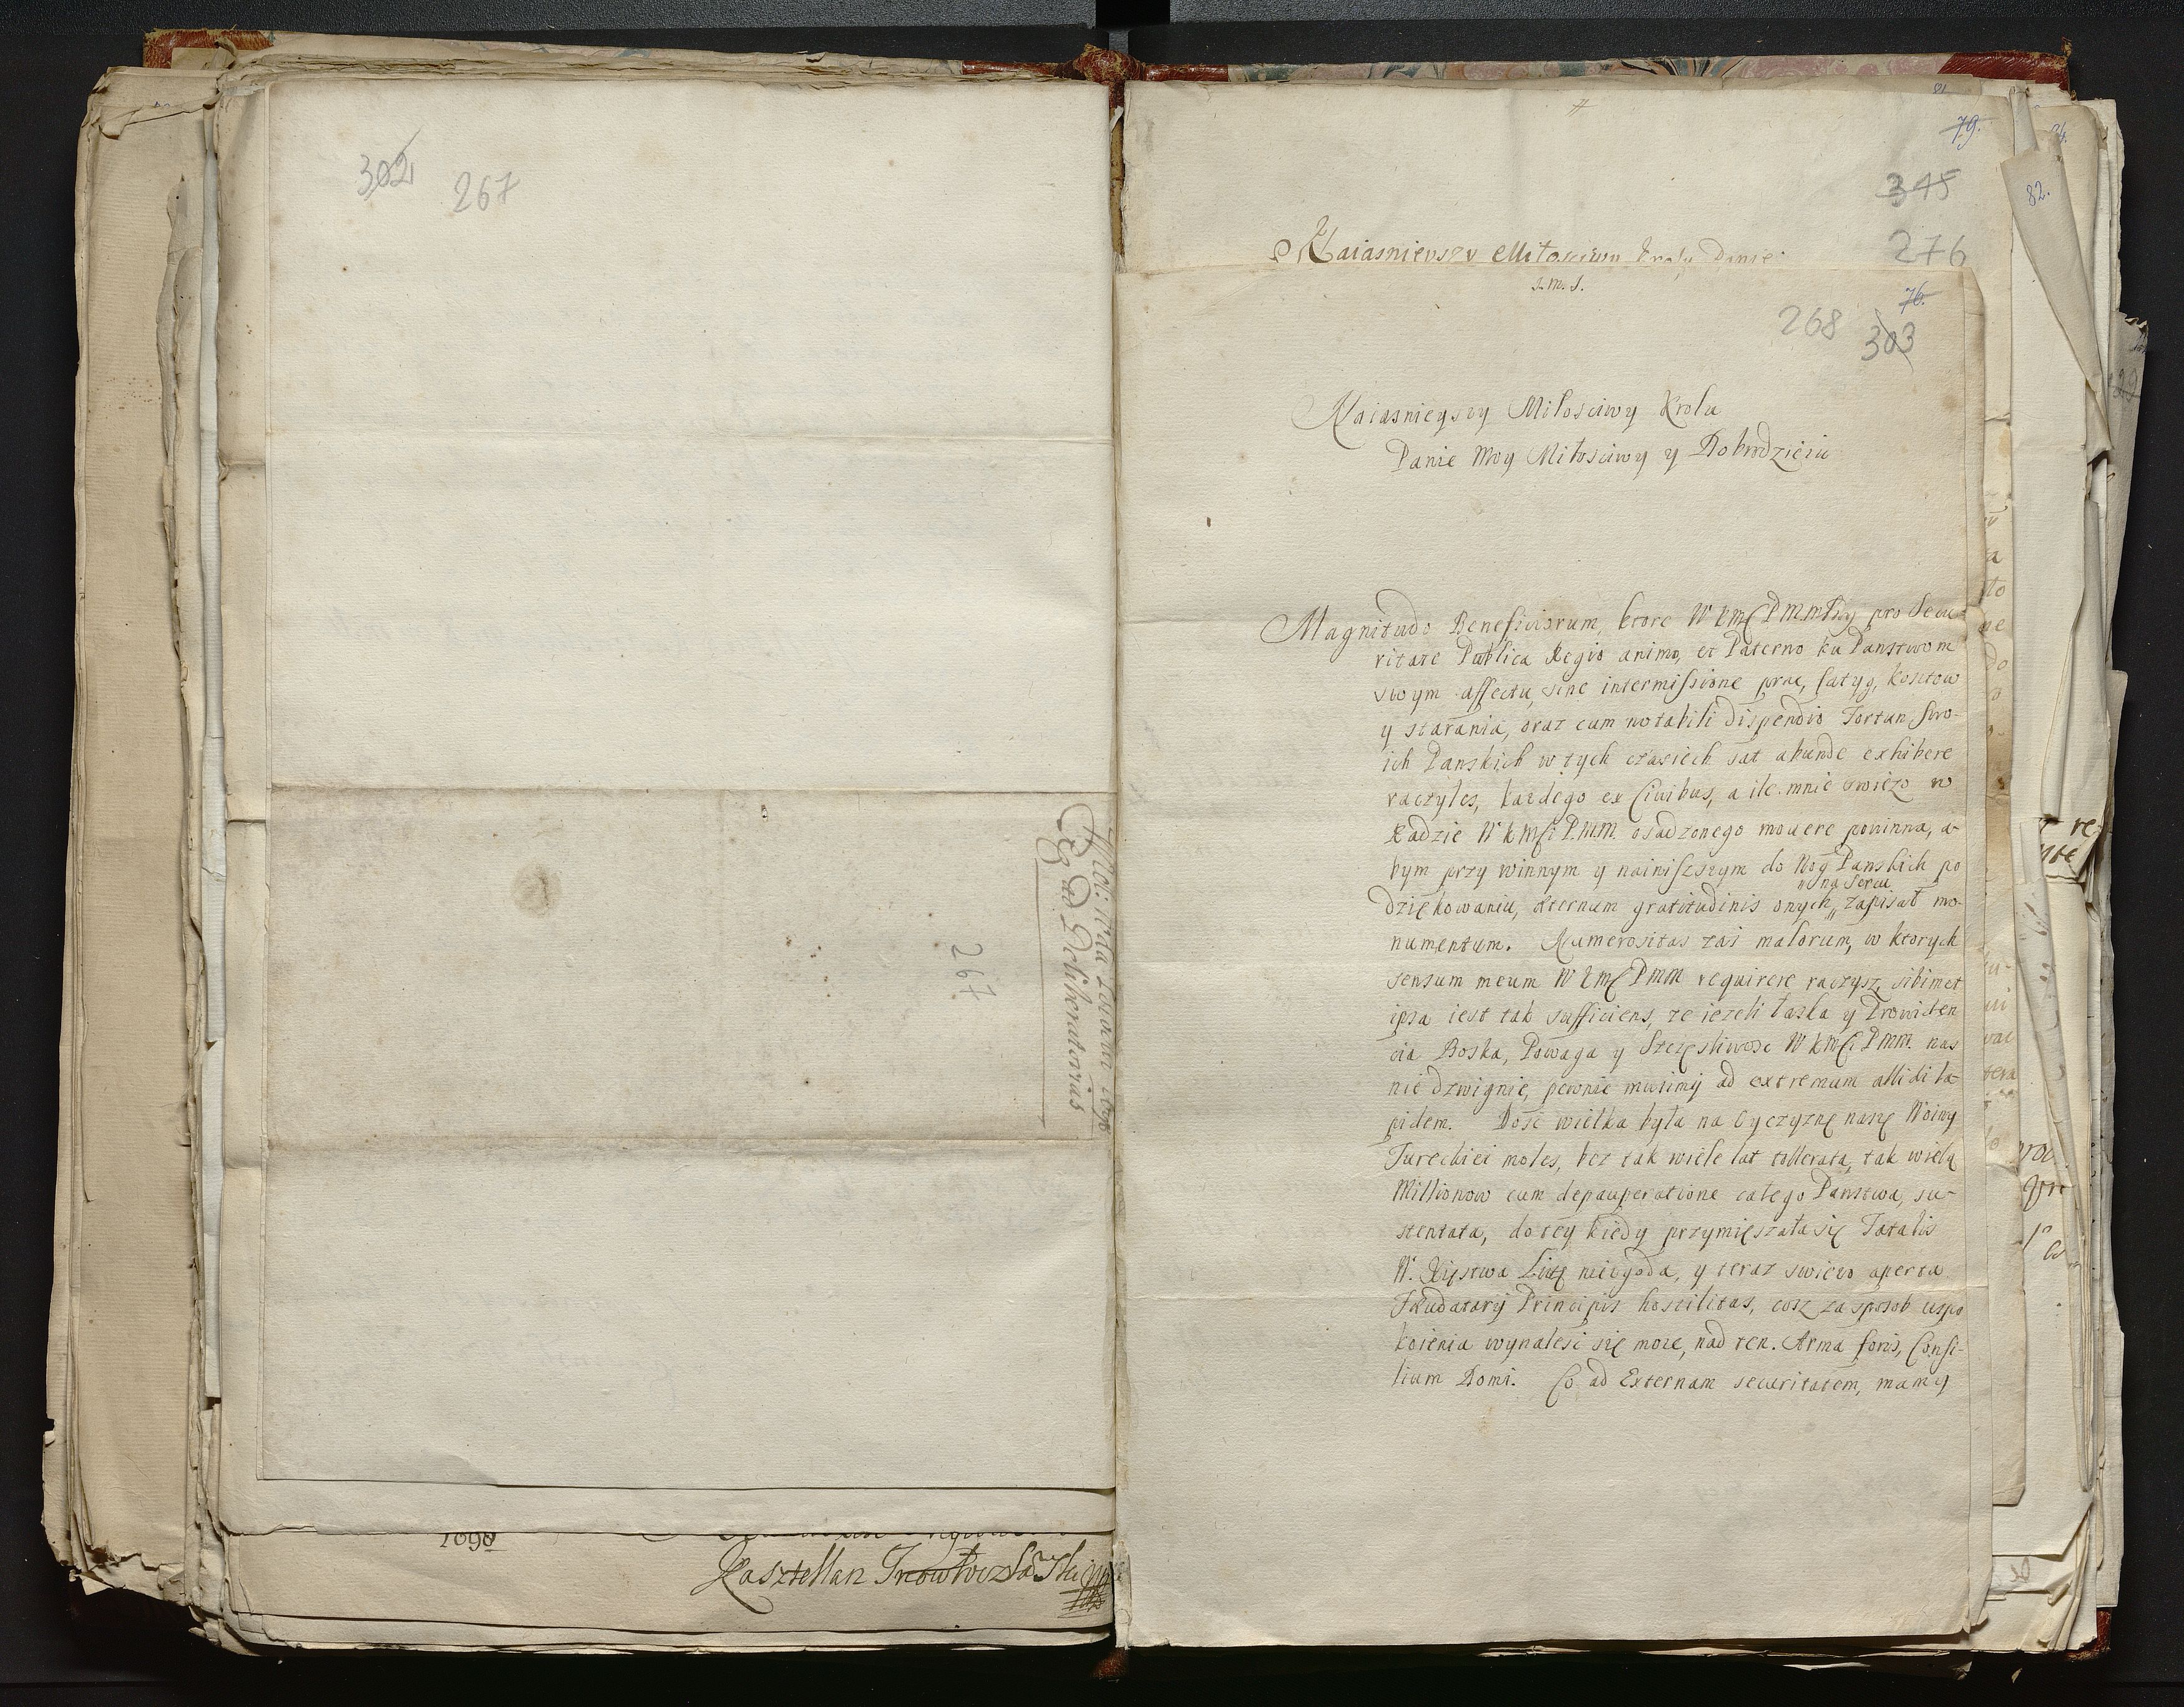 302 267
267
Ex ad Deliberatorias
1690
Kasztellan Inowłocz
79.
345
276
Naiasnieyszy Miłosciwy Krolu Panie
82.
s. m. s.
76.
268 303
Naiasnieyszy Miłosciwy Krolu
Panie Moy Miłosciwy y Dobrodzieiu
Magnitudo Beneficiorum, ktore W K Mć P M Mwy pro Secu-
ritate Publica Regio animo, et Paterno ku Panstwom
swym affectu, sine intermissione prac, fatyg, kosztow
y starania, oraz cum notabili dispendio Fortun Swo-
ich Panskich w tych czasiech sat abunde exhibere
raczyles, kazdego ex Civibus, a ile mnie swiezo w
Radzie W K Mći P. M. M. osadzonego movere powinna, a-
bym przy winnym y nainiszszym do Nog Panskich po
dziękowaniu, æternum gratitudinis onych „ zapisał mo-
w na Sercu
numentum. Numerositas zas malorum, w ktorych
sensum meum W K Mć P M M requirere raczysz, sibimet
ipsa iest tak sufficiens, ze iezeli łaska y Prowiden
cia Boska, Powaga y Szczęsliwosc W K Mći P M M. nas
nie dzwignie, pewnie musimy ad extremum allidi la-
pidem. Dosć wielka była na Oyczyznę naszę Woiny
Tureckiei moles, bez tak wiele lat tollerata, tak wielą
Millionow cum depauperatione całego Panstwa, su-
stentata, do tey kiedy przymięszała się Fatalis
W. Xięstwa Litt niezgoda, y teraz swiezo aperta
Feudatarij Principis hostilitas, cosz za sposob uspo
koienia wynalesc się moze, nad ten. Arma foris, Consi-
lium Domi. Co ad Externam securitatem, mamy